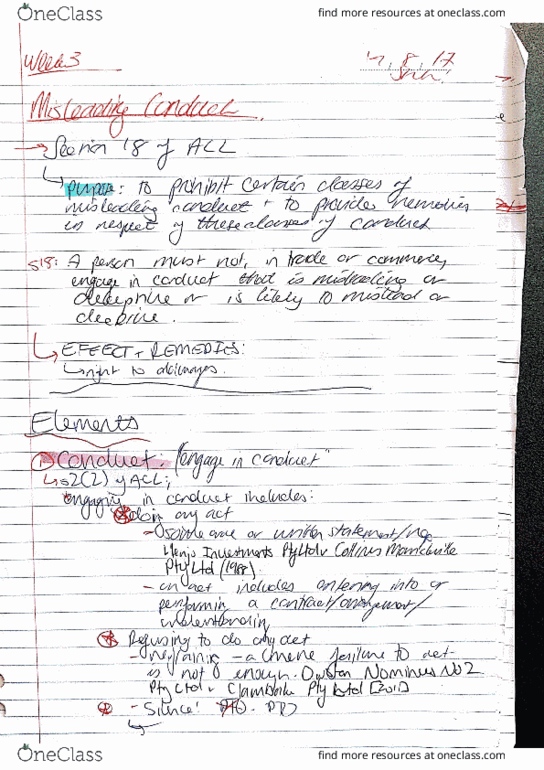 OneClass
find more resources at oneclass.com
Week 3
8. 17
Misleading Conduct.
→ Section 18 of ACL
purpose: to prohibit certain classes of
misleading conduct + to provide remedies
in respect of these classes of conduct
s18: A person must not, in trade or commerce,
engage in conduct that is misleading or
deceptive or is likely to mislead or
deceive.
EFFECT + REMEDIES:
right to damages.
Elements
① Conduct: "engage in conduct"
s2(2) of ACL;
engaging in conduct includes:
doing any act
- or written statement/
Investments Pty Ltd v Collins Marrickville
Pty Ltd (1988).
- an act includes entering into or
performing a contract/arrangement/
understanding
Refusing to do any act
- refraining - a mere failure to act
is not enough. Nominees No 2
Pty Ltd v Clambake Pty Ltd [2011]
- Silence!
OneClass
find more resources at oneclass.com